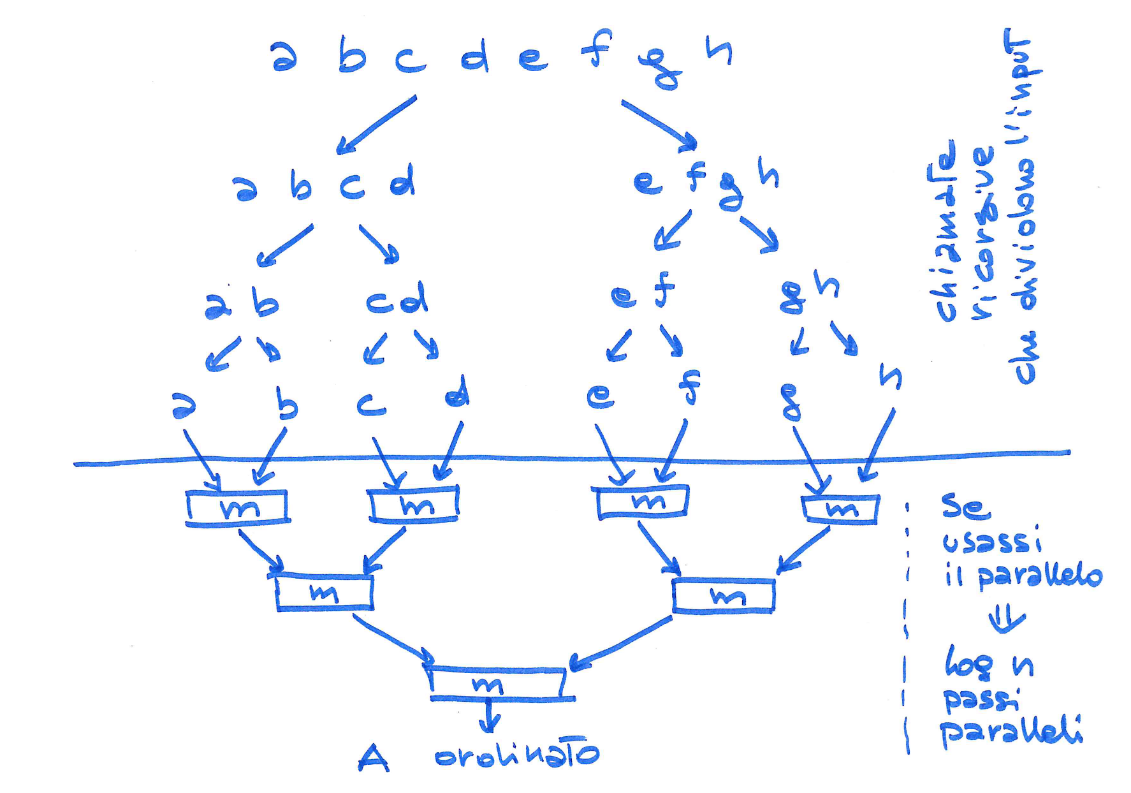 a b c d e f g h
a b c d
e f g h
a b
c d
e f
g h
a
b
c
d
e
f
g
h
chiamate
ricorsive
che dividono l'input
m
m
m
m
m
m
m
A ordinato
Se
usassi
il parallelo
⇓
log n
passi
paralleli